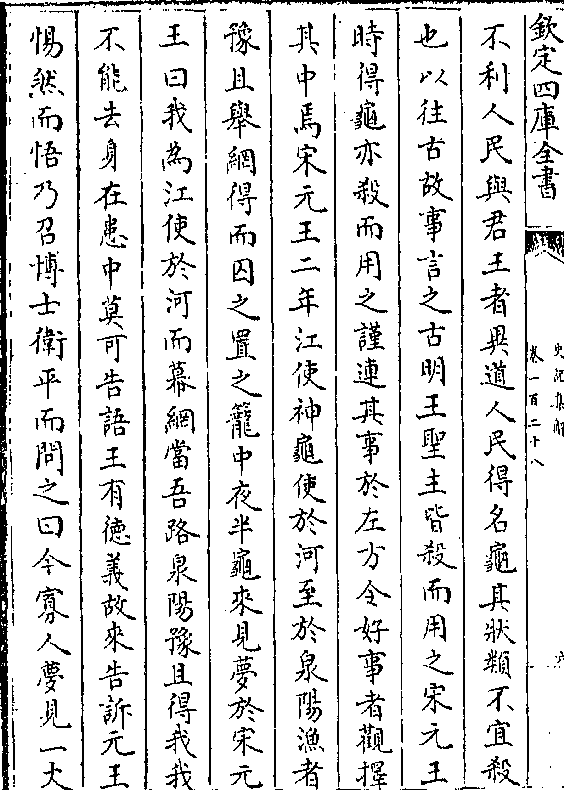 欽定四庫全書
史記集解
卷一百二十八
六
不利人民與君王者異道人民得名龜其狀類不宜殺
也以往古故事言之古明王聖主皆殺而用之宋元王
時得龜亦殺而用之謹連其事於左方令好事者觀擇
其中焉宋元王二年江使神龜使於河至於泉陽漁者
豫且舉網得而囚之置之籠中夜半龜來見夢於宋元
王曰我為江使於河而幕網當吾路泉陽豫且得我我
不能去身在患中莫可告語王有德義故來告訴元王
惕然而悟乃召博士衛平而問之曰今寡人夢見一丈